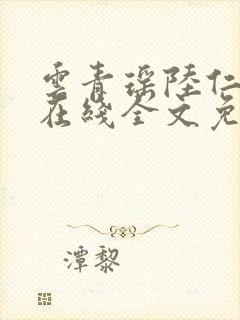 雲青瑶陸仁
在綫全文免
潭黎